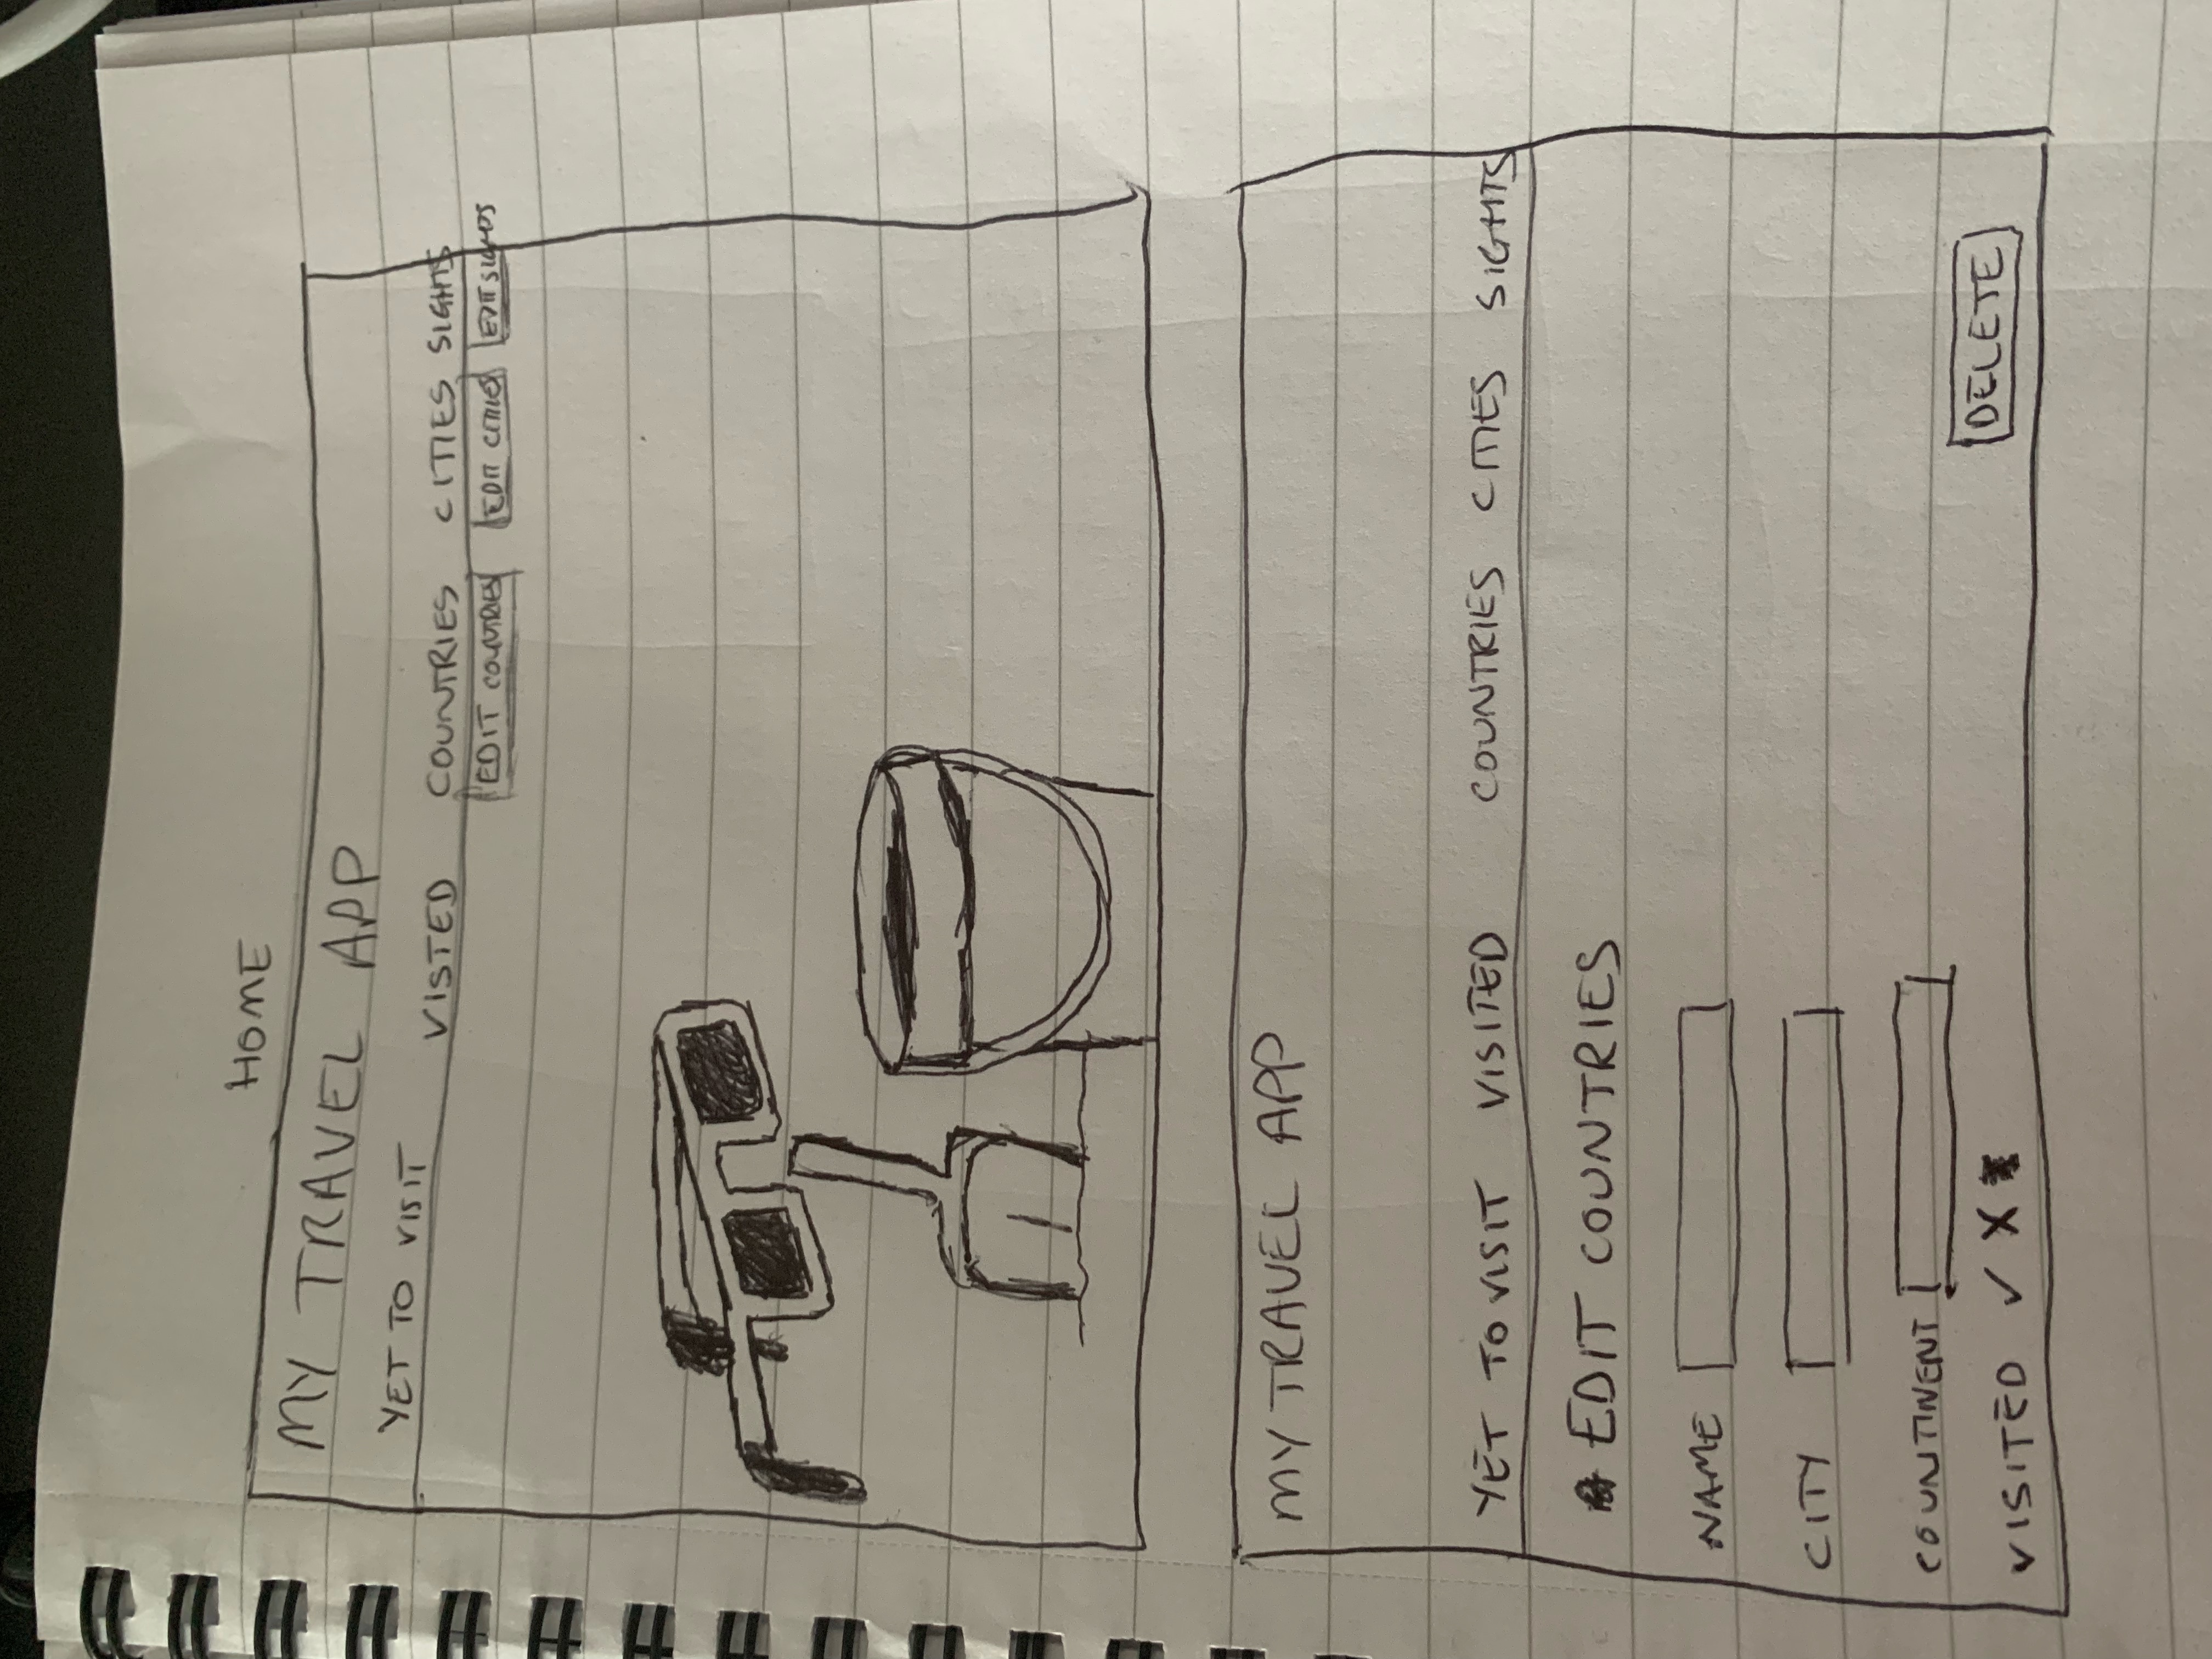 HOME
MY TRAVEL APP
YET TO VISIT VISTED COUNTRIES CITIES SIGHTS
EDIT COUNTRIES EDIT CITIES EDIT SIGHTS
MY TRAVEL APP
YET TO VISIT VISITED COUNTRIES CITIES SIGHTS
EDIT COUNTRIES
NAME
CITY
COUNTINENT
VISITED ✓ X
DELETE